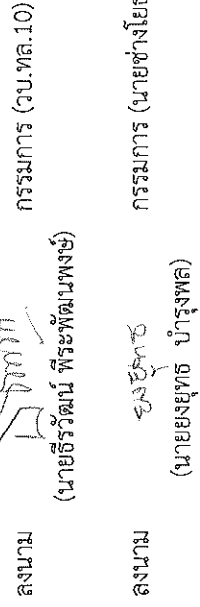 ลงนาม กรรมการ (วบ.ทล.10)
(นายธีรวัฒน์ พีระพัฒนพงษ์)
ลงนาม ยงยุทธ กรรมการ (นายช่างโยธ
(นายยงยุทธ บำรุงพล)